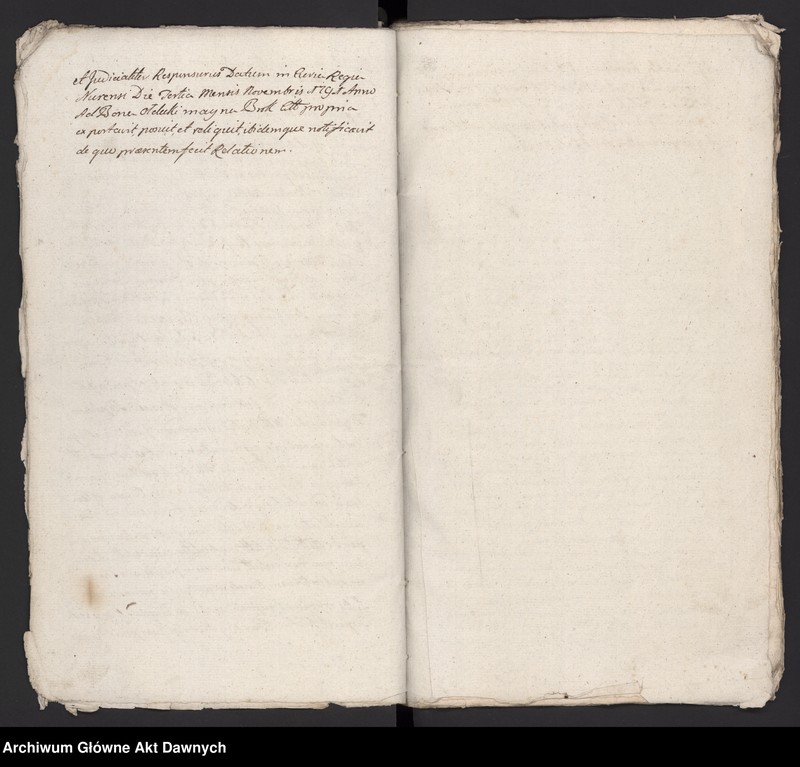 et Judicialiter Responsurus Datum in Curia Regia
Nurensi Die Tertia Mensis Novembris Anno
Ad Bona magna Brok
exportavit posuit, et reliquit, ibidemque notificavit
de quo præsentem fecit Relationem.
Archiwum Główne Akt Dawnych